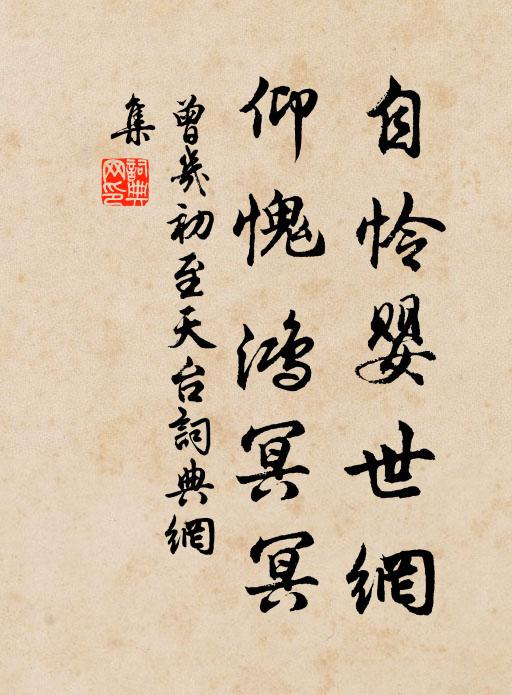 自怜婴世網
仰愧鴻冥冥
曾幾初至天台詞典網
集
詞典网印